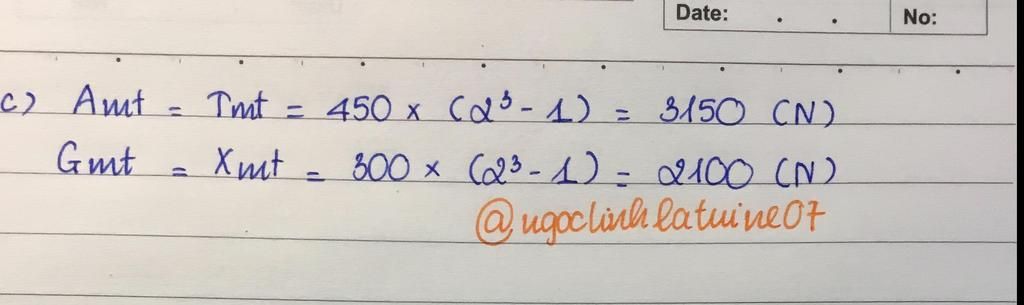 Date: . .
No:
c) Amt = Tmt = 450 x (2³ - 1) = 3150 (N)
Gmt = Xmt = 300 x (2³ - 1) = 2100 (N)
@ngoclinhlatuine07